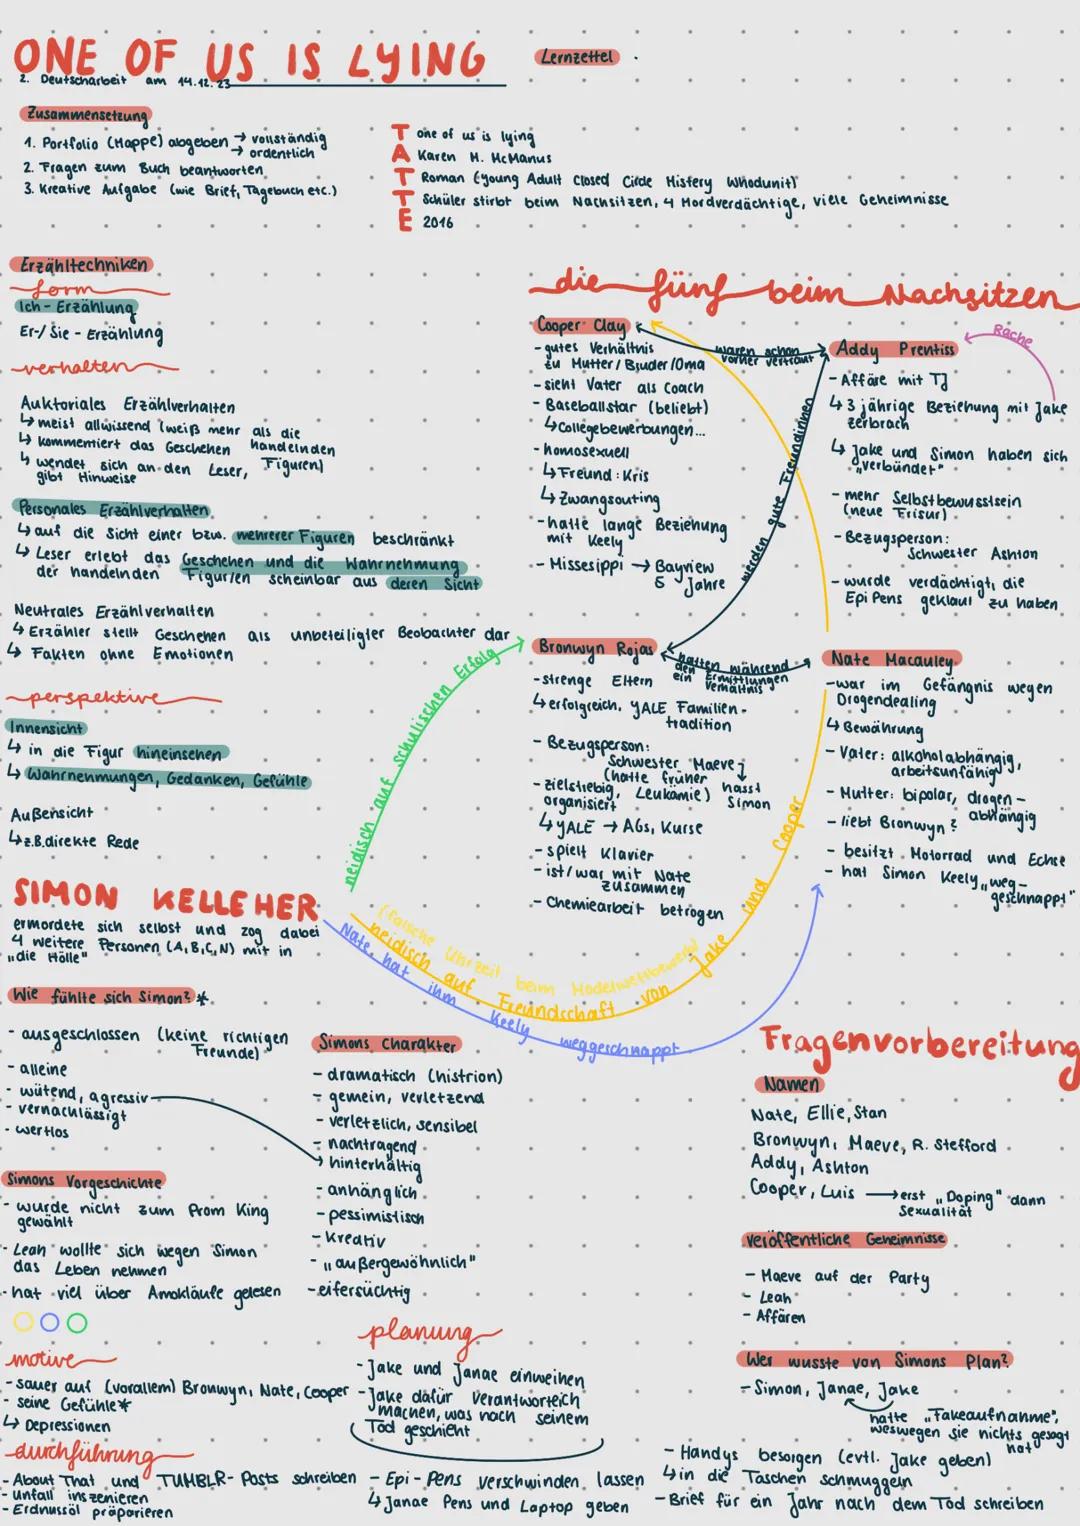 ONE OF US IS LYING
Lernzettel
2. Deutscharbeit am 14.12.23
Zusammensetzung
1. Portfolio (Mappe) abgeben → vollständig
→ ordentlich
2. Fragen zum Buch beantworten
3. Kreative Aufgabe (wie Brief, Tagebuch etc.)
T one of us is lying
A Karen M. McManus
T Roman (young Adult Closed Circle Mistery Whodunit)
T Schüler stirbt beim Nachsitzen, 4 Mordverdächtige, viele Geheimnisse
E 2016
Erzähltechniken
form
Ich-Erzählung
Er-/Sie-Erzählung
verhalten
Auktoriales Erzählverhalten
↳ meist allwissend (weiß mehr als die
handelnden
Figuren)
↳ kommentiert das Geschehen
↳ wendet sich an den Leser,
gibt Hinweise
Personales Erzählverhalten
↳ auf die Sicht einer bzw. mehrerer Figuren beschränkt
↳ Leser erlebt das Geschehen und die Wahrnehmung
der handelnden Figur/en scheinbar aus deren Sicht
Neutrales Erzählverhalten
↳ Erzähler stellt Geschehen als unbeteiligter Beobachter dar
↳ Fakten ohne Emotionen
perspektive
Innensicht
↳ in die Figur hineinsehen
↳ Wahrnehmungen, Gedanken, Gefühle
Außensicht
↳ z.B. direkte Rede
die fünf beim Nachsitzen
Cooper Clay
- gutes Verhältnis
zu Mutter/Bruder/Oma
- sieht Vater als Coach
- Baseballstar (beliebt)
↳ Collegebewerbungen...
- homosexuell
↳ Freund: Kris
↳ Zwangsouting
- hatte lange Beziehung
mit Keely
- Missesippi → Bayview
5 Jahre
waren schon
vorher vertraut
werden gute Freundinnen
Rache
Addy Prentiss
- Affäre mit TJ
↳ 3 jährige Beziehung mit Jake
zerbrach
↳ Jake und Simon haben sich
"verbündet"
- mehr Selbstbewusstsein
(neue Frisur)
- Bezugsperson:
Schwester Ashton
- wurde verdächtigt, die
EpiPens geklaut zu haben
Bronwyn Rojas
- strenge Eltern
↳ erfolgreich, YALE Familien-
tradition
- Bezugsperson:
Schwester Maeve
(hatte früher
Leukämie)
hasst
Simon
- zielstrebig,
organisiert
↳ YALE → AGs, Kurse
- spielt Klavier
- ist/war mit Nate
zusammen
- Chemiearbeit betrogen
hatten während
den Ermittlungen
ein Verhältnis
Nate Macauley
- war im Gefängnis wegen
Drogendealing
↳ Bewährung
- Vater: alkoholabhängig,
arbeitsunfähig
- Mutter: bipolar, drogen-
abhängig
- liebt Bronwyn?
- besitzt Motorrad und Echse
- hat Simon Keely "weg-
geschnappt"
neidisch auf schulischen Erfolg
(falsche Uhrzeit beim Modelwettbewerb)
neidisch auf Freundschaft von Jake und Cooper
Nate hat ihm Keely weggeschnappt
SIMON KELLEHER
ermordete sich selbst und zog dabei
4 weitere Personen (A,B,C,N) mit in
"die Hölle"
Wie fühlte sich Simon? *
- ausgeschlossen (keine richtigen
Freunde)
- alleine
- wütend, agressiv
- vernachlässigt
- wertlos
Simons Charakter
- dramatisch (histrion)
- gemein, verletzend
- verletzlich, sensibel
- nachtragend
→ hinterhältig
- anhänglich
- pessimistisch
- kreativ
- "außergewöhnlich"
- eifersüchtig
Simons Vorgeschichte
- wurde nicht zum Prom King
gewählt
- Leah wollte sich wegen Simon
das Leben nehmen
- hat viel über Amokläufe gelesen
motive
- sauer auf (vorallem) Bronwyn, Nate, Cooper
- seine Gefühle*
↳ Depressionen
planung
- Jake und Janae einweihen
- Jake dafür verantworteich
machen, was nach seinem
Tod geschieht
durchführung
- About That und TUMBLR-Posts schreiben
- Unfall inszenieren
- Erdnussöl präparieren
- Epi-Pens verschwinden lassen
↳ Janae Pens und Laptop geben
- Handys besorgen (evtl. Jake geben)
↳ in die Taschen schmuggeln
- Brief für ein Jahr nach dem Tod schreiben
Fragenvorbereitung
Namen
Nate, Ellie, Stan
Bronwyn, Maeve, R. Stefford
Addy, Ashton
Cooper, Luis → erst "Doping" dann
Sexualität
veröffentliche Geheimnisse
- Maeve auf der Party
- Leah
- Affären
Wer wusste von Simons Plan?
- Simon, Janae, Jake
hatte "Fakeaufnahme",
weswegen sie nichts gesagt
hat